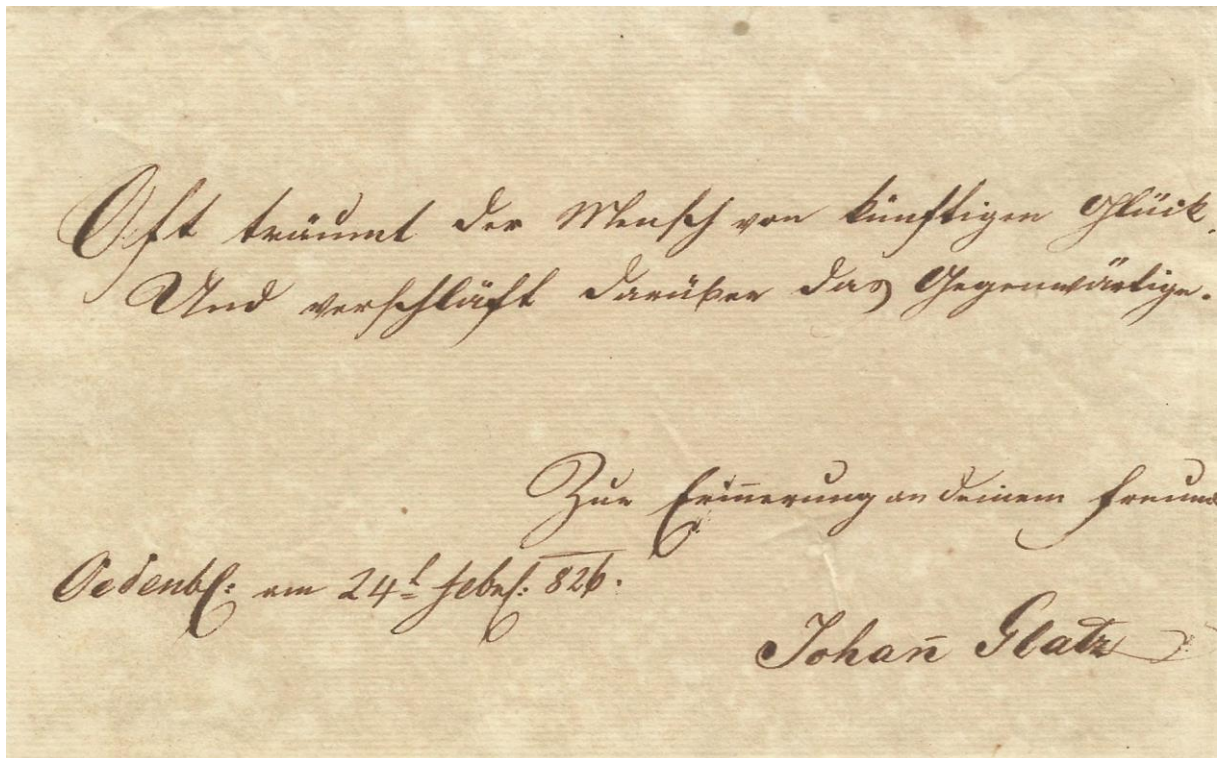 Oft träumt der Mensch von künftigen Glück,
Und verschläft darüber das Gegenwärtige.
Zur Erinnerung an deinem Freund
Oedenb: am 24t Feber: 826.
Johan̄ Glatz